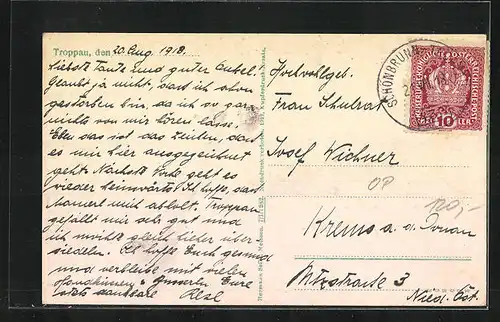 Troppau, den 20 Aug. 1918.
Liebste Tante und guter Onkel!
Glaubt ja nicht, dass ich schon
gestorben bin, da ich so gar
nichts von mir hören lasse.
Eben das ist das Zeichen, dass
es mir hier ausgezeichnet
geht. Nächste Woche geht es
wieder heimwärts. Ich hoffe, dass
Mauerl mich abholt. Troppau
gefällt mir sehr gut und
ich möchte gleich lieber über
siedeln. Ich hoffe Euch gesund
und verbleibe mit vielen
Handküssen Eure
stets dankbare Resl
SCHÖNBRUNN
10
Hochwohlgeb.
Frau Schulrat
Josef Wichner
OP
120,-
Krems a. d. Donau
3
Nied. Öst.